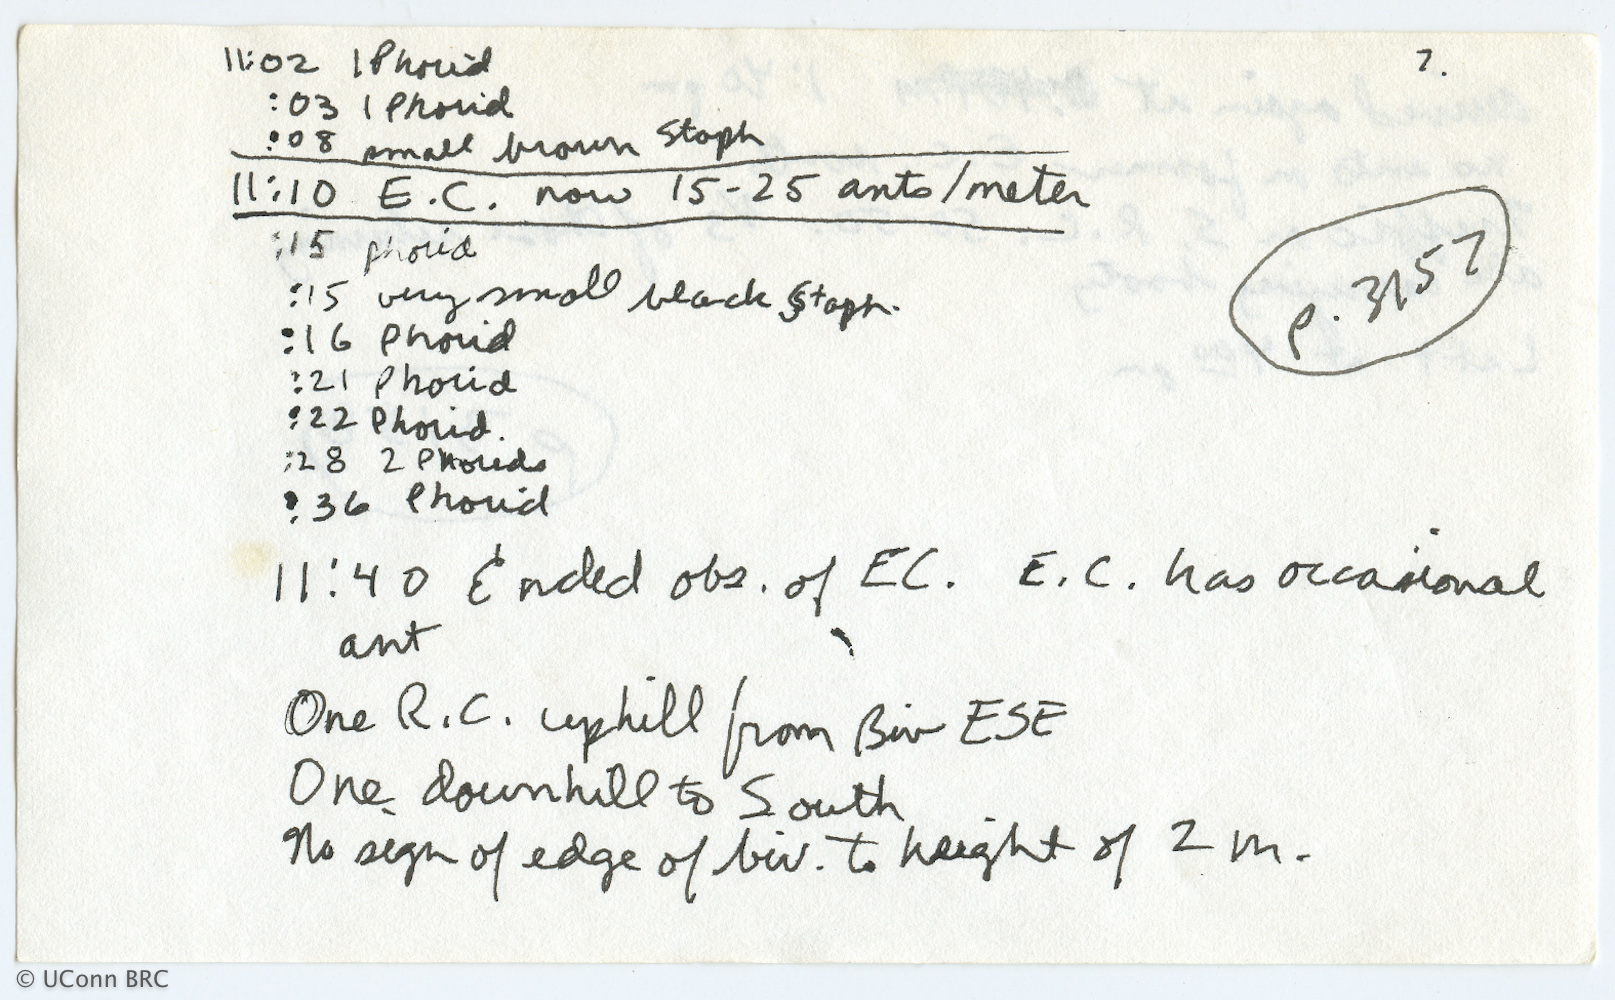 7.
11:02 1 Phorid
:03 1 Phorid
:08 small brown Staph
11:10 E.C. now 15-25 ants/meter
:15 phorid
:15 very small black Staph.
p. 3157
:16 Phorid
:21 Phorid
:22 Phorid.
:28 2 Phorids
:36 Phorid
11:40 Ended obs. of EC. E.C. has occasional
ant
One R.C. uphill from Biv ESE
One downhill to South
No sign of edge of biv. to height of 2 m.
© UConn BRC